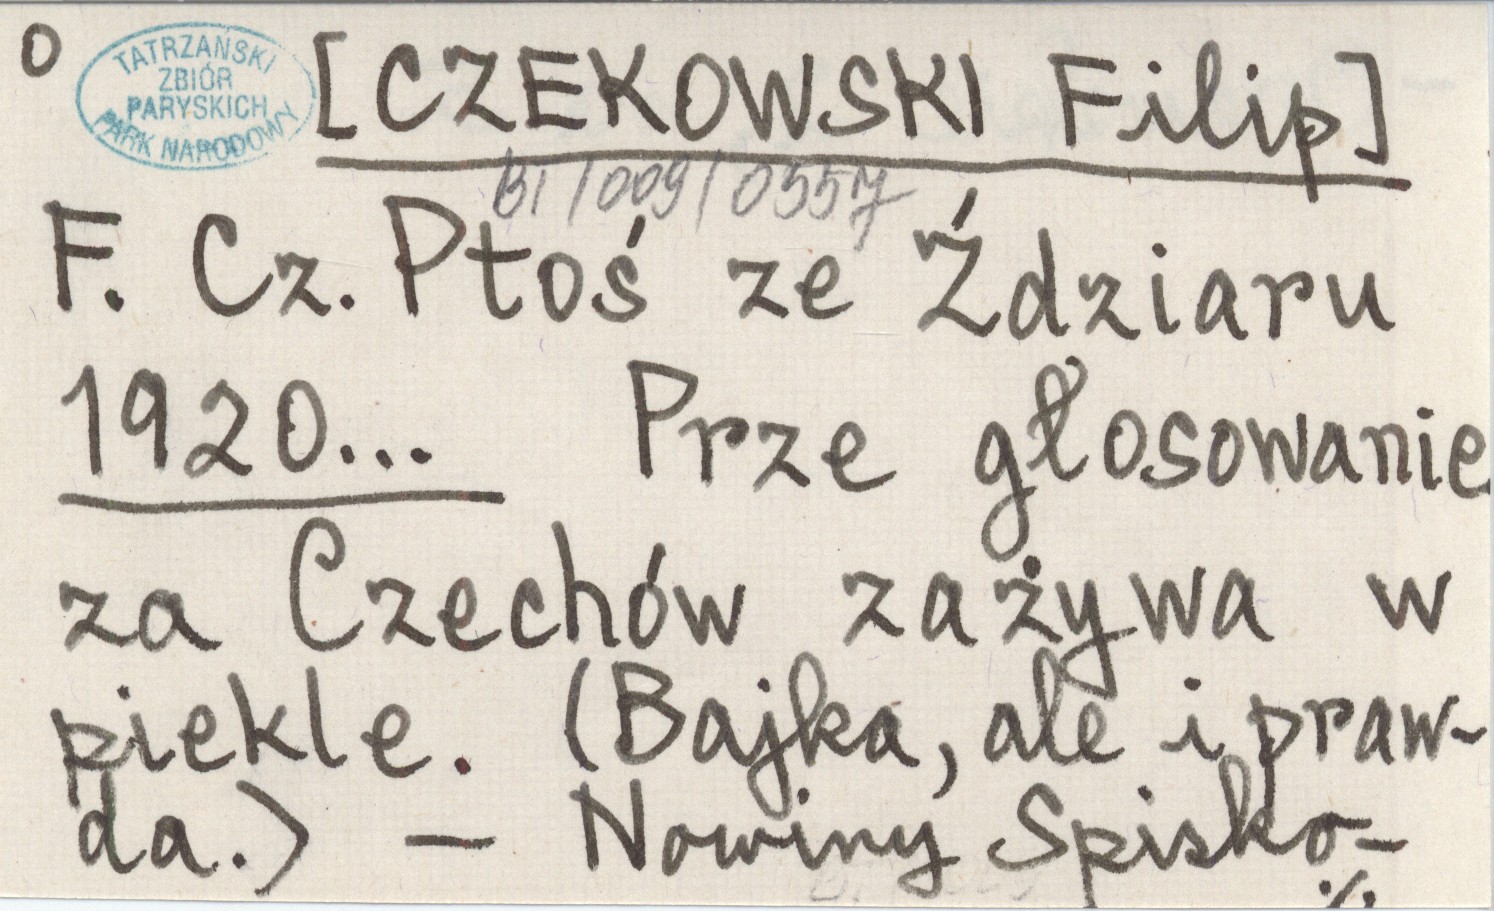 O
TATRZAŃSKI
ZBIÓR
PARYSKICH
PARK NARODOWY
[CZEKOWSKI Filip]
BI/009/0557
F. Cz. Ptoś ze Ździaru
1920... Prze głosowanie
za Czechów zażywa w
piekle. (Bajka, ale i praw-
da.) — Nowiny Spisko-
./.